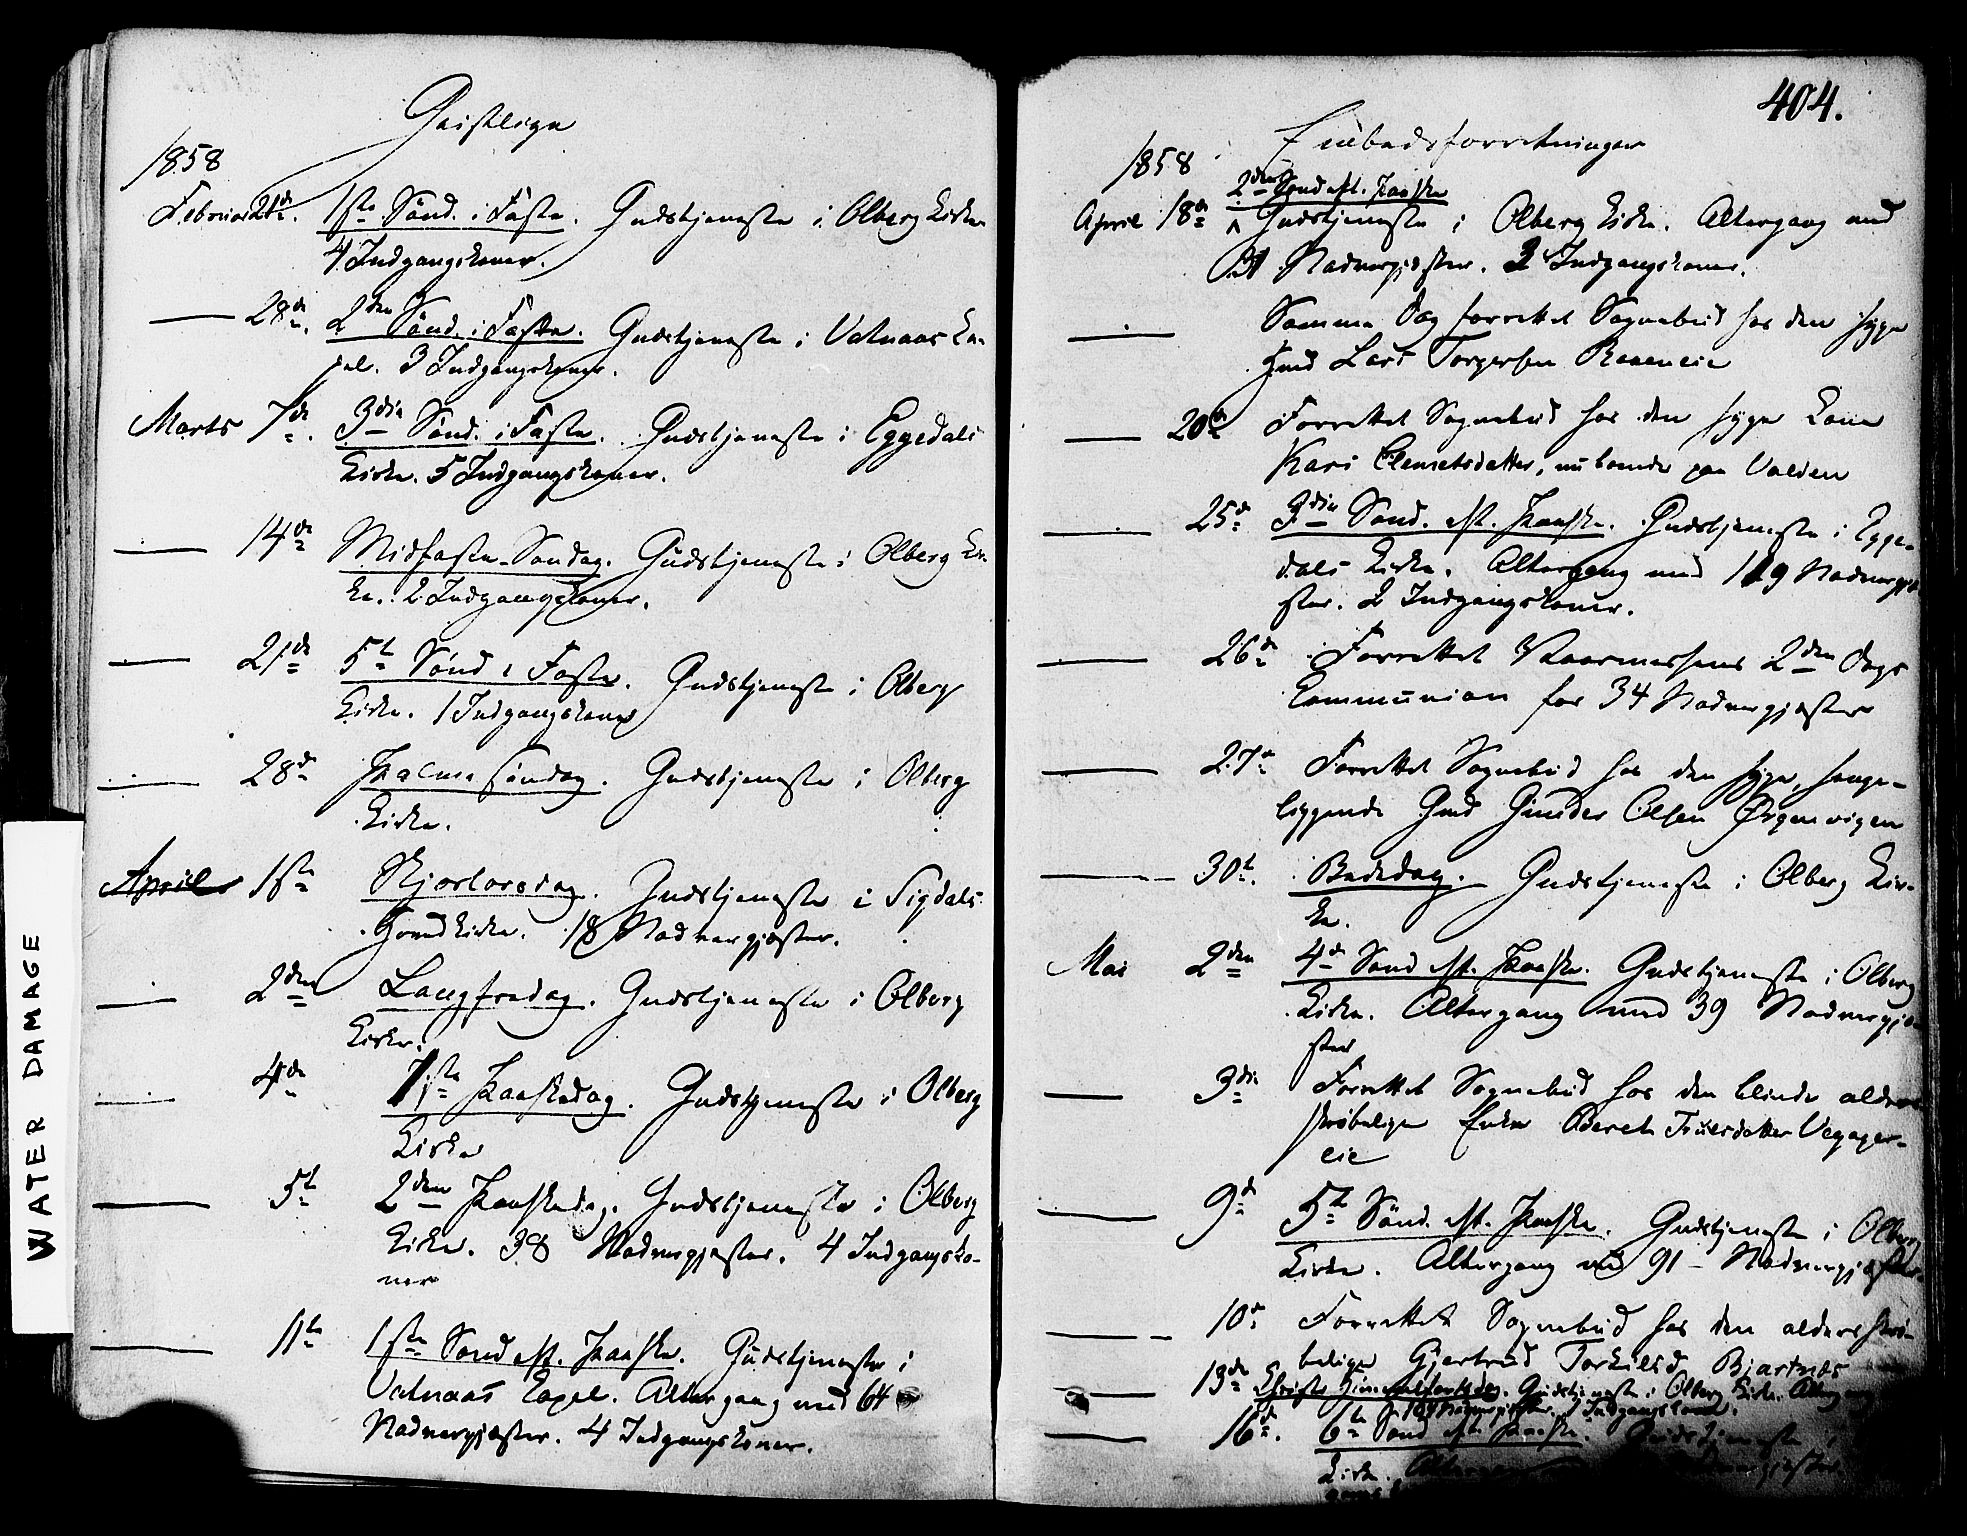 Geistlige
1858
Februar 21de. 1ste Sønd. i Faste. Gudstjeneste i Olberg Kirke
4 Indgangskoner.
— 28de. 2den Sønd. i Faste. Gudstjeneste i Vatnaas Ka-
pel. 3 Indgangskoner.
Marts 7de. 3die Sønd. i Faste. Gudstjeneste i Eggedals
Kirke. 5 Indgangskoner.
— 14de Midfaste-Søndag. Gudstjeneste i Olberg Kir-
ke. 2 Indgangskoner.
— 21de 5te Sønd i Faste. Gudstjeneste i Olberg
Kirke. 1 Indgangskone
— 28de Palme Søndag. Gudstjeneste i Olberg
Kirke.
April 1ste Skjærtorsdag. Gudstjeneste i Sigdals
Hovedkirke. 18 Nadvergjæster.
— 2den Langfredag. Gudstjeneste i Olberg
Kirke.
— 4de 1ste Paaskedag. Gudstjeneste i Olberg
Kirke
— 5te 2den Paaskedag. Gudstjeneste i Olberg
Kirke. 38 Nadvergjæster. 4 Indgangsko-
ner
— 11te 1ste Sønd eft. Paaske. Gudstjeneste i
Vatnaas Capel. Altergang med 64
Nadvergjæster. 4 Indgangskoner.
404.
Embedsforretninger
1858
2den Sønd eft. Paaske
April 18de Gudstjeneste i Olberg Kirke. Altergang med
31 Nadvergjæster. 2 Indgangskoner.
— Samme Dag forrettet Sognebud hos den syge
Gmd Lars Torgersen Raaeneie
— 20de Forrettet Sognebud hos den syge Kone
Kari Clemetsdatter, nu boende paa Valden
— 25de 3die Sønd. eft. Paaske. Gudstjeneste i Egge-
dals Kirke. Altergang med 119 Nadvergjæ-
ster. 2 Indgangskoner.
— 26de Forrettet Vaarmessens 2den Dags
Communion for 34 Nadvergjæster
— 27de Forrettet Sognebud hos den syge, senge-
liggende Gmd Gunder Olsen Ørgenvigen
— 30te. Bededag. Gudstjeneste i Olberg Kir-
ke.
Mai 2den 4de Sønd eft. Paaske. Gudstjeneste i Olberg
Kirke. Altergang med 39 Nadvergjæ-
ster
— 3die Forrettet Sognebud hos den blinde alders-
skrøbelige Enke Beret Truesdatter
eie
— 9de 5te Sønd. eft. Paaske. Gudstjeneste i Olberg
Kirke. Altergang med 91 - Nadvergjæster.
— 10de Forrettet Sognebud hos den aldersskrø-
belige Gjertrud Torkilsd. Bjartnæs
— 13de Christi Himmelfartsdag. Gudstjeneste i Olberg Kirke. Altergang
Nadvergjæster. 1 Indgangskone.
— 16de. 6te Sønd eft. Paaske. Gudstjeneste i
Kirke. Altergang Nadvergjæster.